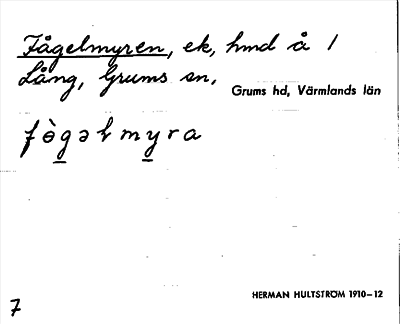 Fågelmyren, ek, hmd å 1
Lång, Grums sn,
Grums hd, Värmlands län
fò̱gəlmy̱ra
HERMAN HULTSTRÖM 1910–12
7